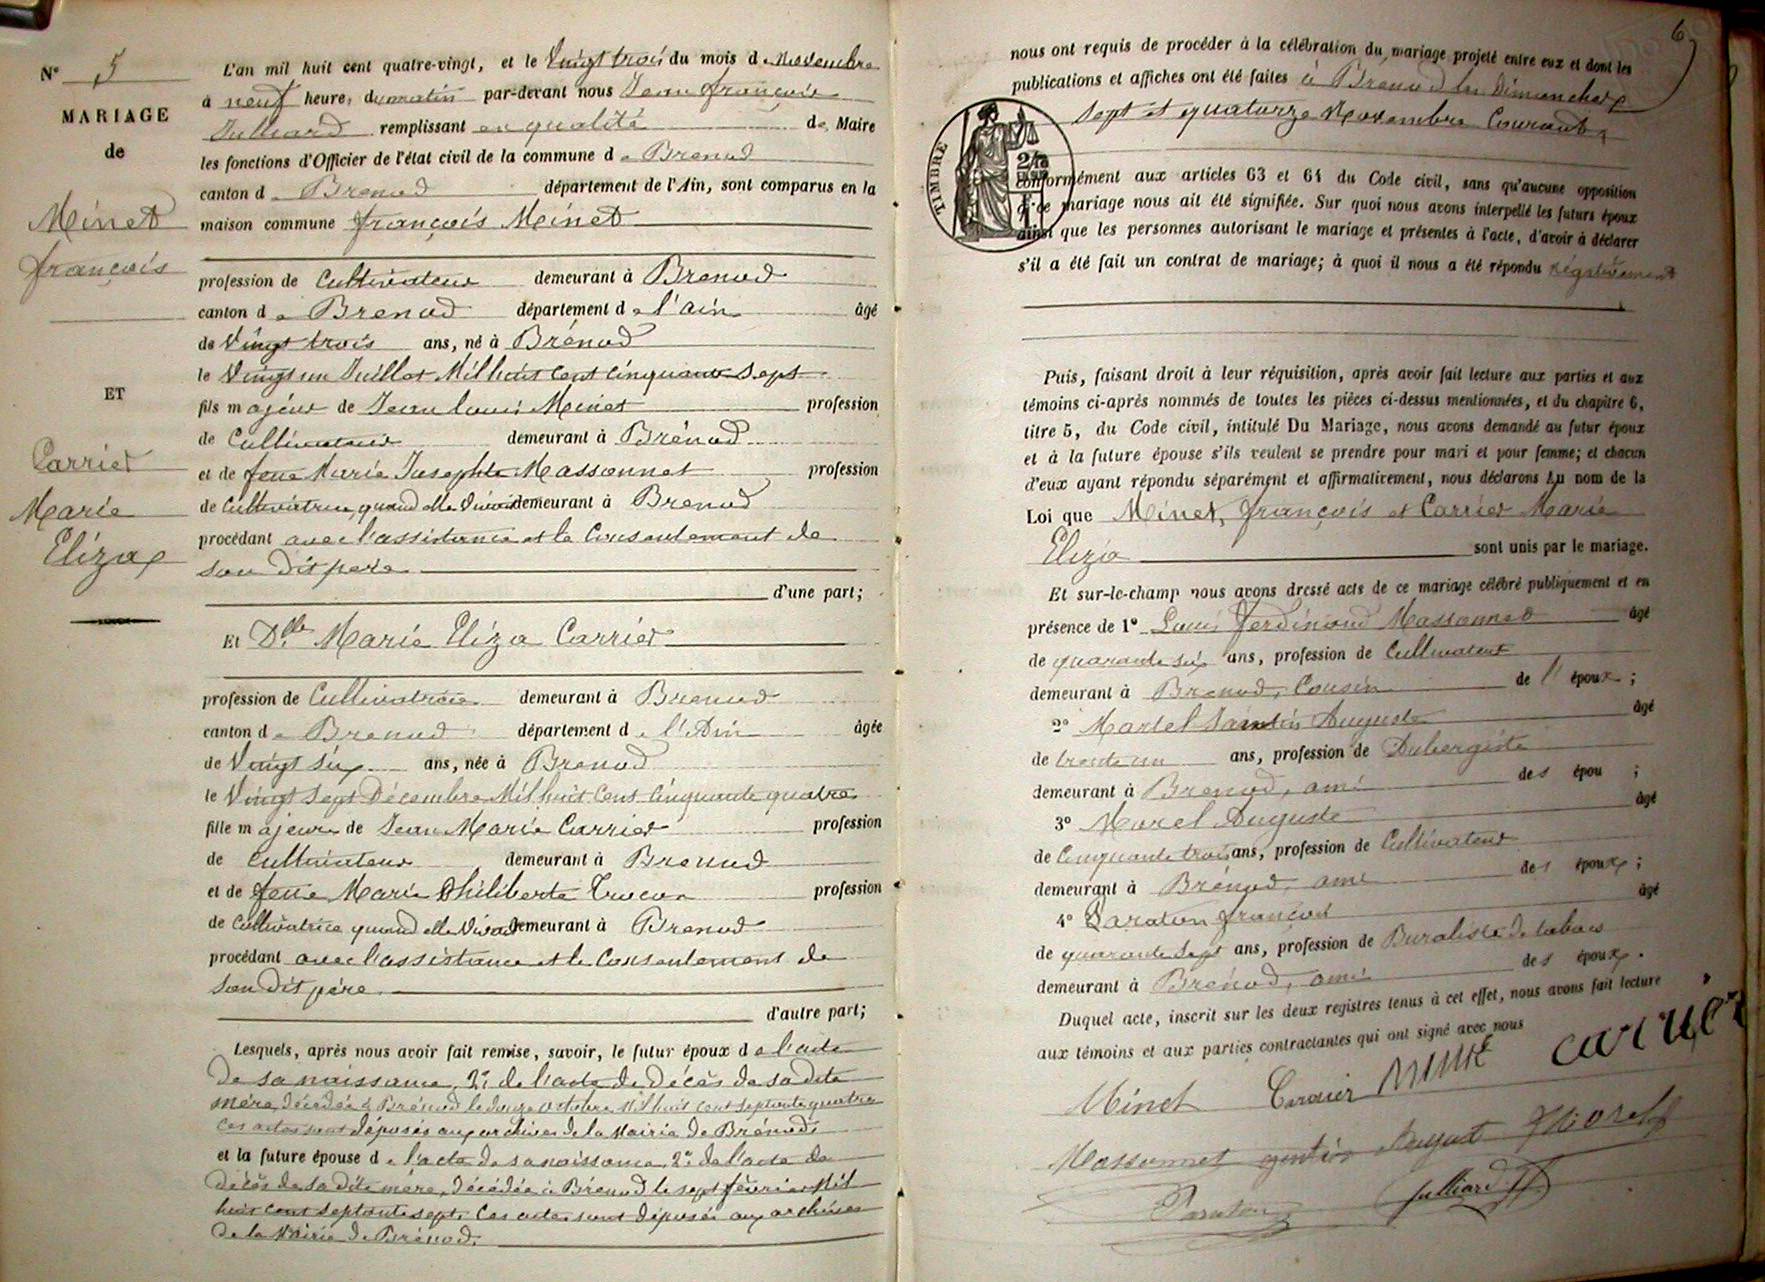 N° 5
MARIAGE
de
Minet
françois
ET
Carrier
Marie
Eliza
L'an mil huit cent quatre-vingt, et le Vingt trois du mois de Novembre
à neuf heures du matin par-devant nous Jean françois
Julliard remplissant en qualité de Maire
les fonctions d'Officier de l'état civil de la commune de Brenod
canton de Brenod département de l'Ain, sont comparus en la
maison commune françois Minet
profession de Cultivateur demeurant à Brenod
canton de Brenod département de l'ain âgé
de Vingt trois ans, né à Brénod
le Vingt un Juillet Mil huit Cent Cinquante Sept
fils majeur de Jean louis Minet profession
de Cultivateur demeurant à Brénod
et de feue Marie Josephte Massonnet profession
de Cultivatrice, quand elle vivait demeurant à Brenod
procédant avec l'assistance et le Consentement de
son dit père
d'une part;
Et Dlle Marie Eliza Carrier
profession de Cultivatrice demeurant à Brenod
canton de Brenod département de l'Ain âgée
de Vingt Six ans, née à Brenod
le Vingt Sept Décembre Mil huit Cent Cinquante quatre
fille majeure de Jean Marie Carrier profession
de Cultivateur demeurant à Brenod
et de feue Marie Philiberte profession
de Cultivatrice quand elle Vivait demeurant à Brenod
procédant avec l'assistance et le Consentement de
son dit père
d'autre part;
Lesquels, après nous avoir fait remise, savoir, le futur époux de l'acte
de sa naissance, 2° de l'acte de décès de sa dite
mère, décédée à Brénod le douze octobre Mil huit cent septante quatre
Ces actes sont déposés aux archives de la Mairie de Brénod
et la future épouse de l'acte de sa naissance, 2° de l'acte de
décès de sa dite mère, décédée à Brénod le sept février Mil
huit cent septante sept. Ces actes sont déposés aux archives
de la Mairie de Brénod.
6
nous ont requis de procéder à la célébration du mariage projeté entre eux et dont les
publications et affiches ont été faites à Brenod les Dimanches
sept et quatorze Novembre Courant,
TIMBRE
conformément aux articles 63 et 64 du Code civil, sans qu'aucune opposition
à ce mariage nous ait été signifiée. Sur quoi nous avons interpellé les futurs époux
ainsi que les personnes autorisant le mariage et présentes à l'acte, d'avoir à déclarer
s'il a été fait un contrat de mariage; à quoi il nous a été répondu négativement
Puis, faisant droit à leur réquisition, après avoir fait lecture aux parties et aux
témoins ci-après nommés de toutes les pièces ci-dessus mentionnées, et du chapitre 6,
titre 5, du Code civil, intitulé Du Mariage, nous avons demandé au futur époux
et à la future épouse s'ils veulent se prendre pour mari et pour femme; et chacun
d'eux ayant répondu séparément et affirmativement, nous déclarons Au nom de la
Loi que Minet, françois et Carrier Marie
Eliza sont unis par le mariage.
Et sur-le-champ nous avons dressé acte de ce mariage célébré publiquement et en
présence de 1° Louis ferdinand Massonnet âgé
de quarante six ans, profession de Cultivateur
demeurant à Brenod, Cousin de l'époux;
2° Martel Auguste âgé
de trente un ans, profession de Aubergiste
demeurant à Brenod, ami des épou ;
3° Morel Auguste âgé
de Cinquante trois ans, profession de Cultivateur
demeurant à Brénod, ami des époux;
4° françois âgé
de quarante sept ans, profession de Buraliste de tabacs
demeurant à Brénod, ami des époux.
Duquel acte, inscrit sur les deux registres tenus à cet effet, nous avons fait lecture
aux témoins et aux parties contractantes qui ont signé avec nous
Minet Carrier Minet carrier
Massonnet August Morel
Julliard